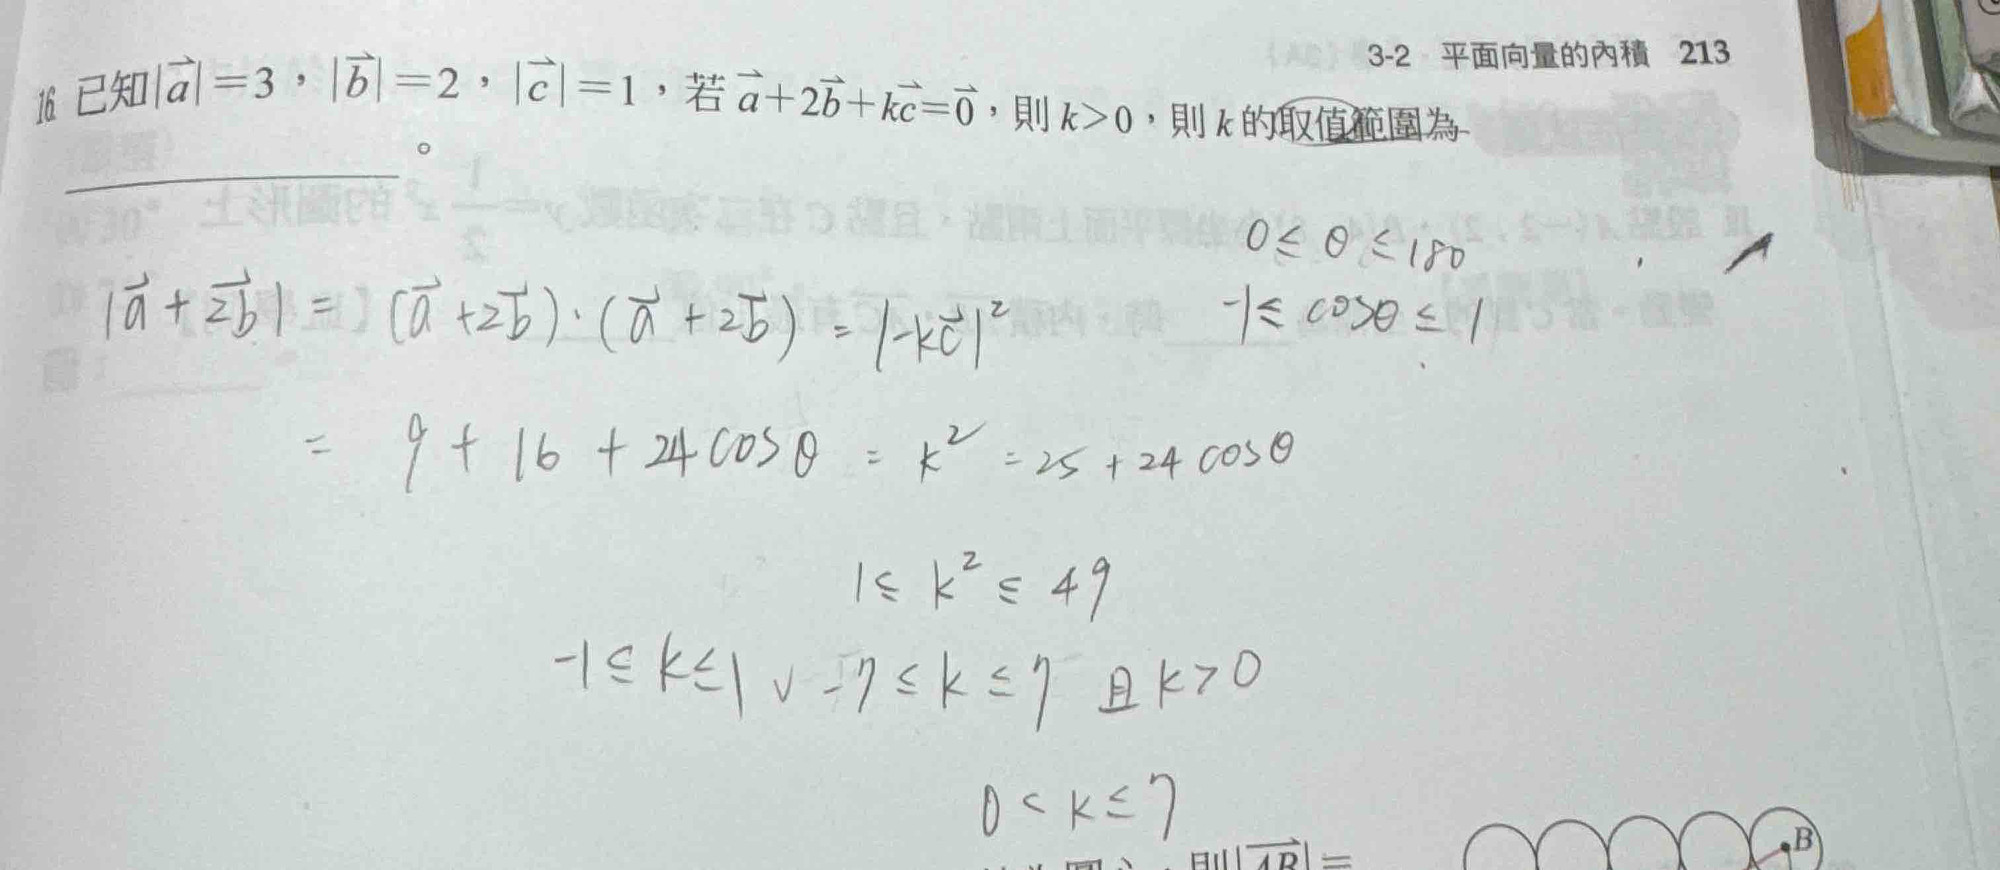 3-2 平面向量的內積 213
16 已知|a⃗|=3，|b⃗|=2，|c⃗|=1，若 a⃗+2b⃗+kc⃗=0⃗，則 k>0，則 k 的取值範圍為
。
0≤θ≤180
-1≤cosθ≤1
|a⃗+2b⃗| = (a⃗+2b⃗)·(a⃗+2b⃗) = |-kc⃗|²
= 9+16+24cosθ = k² = 25+24cosθ
1≤k²≤49
-1≤k≤1 ∨ -7≤k≤7 且 k>0
0<k≤7
則|AB⃗|=
B